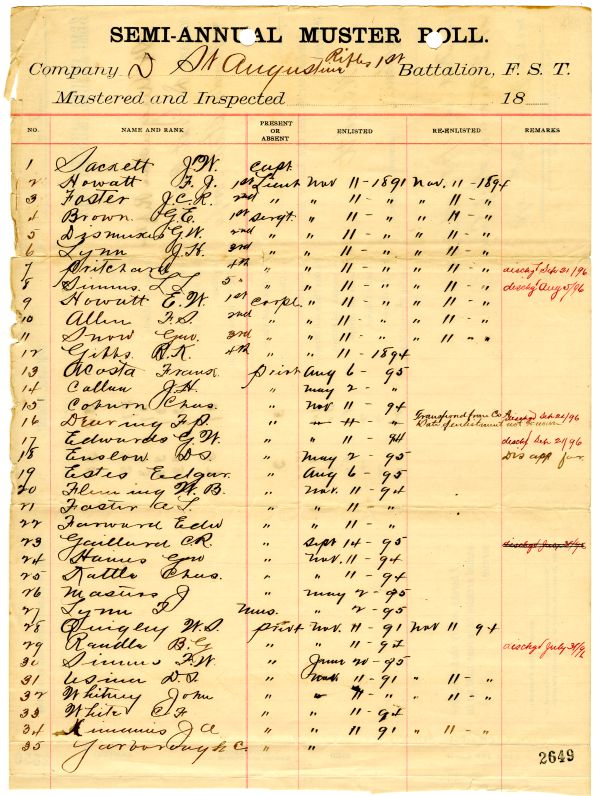 SEMI-ANNUAL MUSTER ROLL.
Company D St Augustine Rifles 1st Battalion, F. S. T.
Mustered and Inspected 18
NO. NAME AND RANK PRESENT OR ABSENT ENLISTED RE-ENLISTED REMARKS
1 Sackett J.W. Capt.
2 Howatt F.J. 1st Lieut Nov 11-1891 Nov. 11-1894
3 Foster J.C.R. 2nd " " 11 - " " 11 - "
4 Brown G.E. 1st Sergt. " 11 - " " 11 - "
5 Dismukes G.W. 2nd " " 11 - " " 11 - "
6 Lynn J.H. 3rd " " 11 - " " 11 - "
7 Pritchard 4th " " 11 - " " 11 - " dischgd Feb 21/96
8 Simms L 5 " " " 11 - " " 11 - " dischgd Aug 5/96
9 Howatt E.W. 1st Corpl " 11 - " " 11 - "
10 Allen F.S. 2nd " " 11 - " " 11 - "
11 Snow Geo. 3rd " " 11 - " " 11 - "
12 Gibbs R.R. 4th " " 11 - 1894
13 Acosta Frank privt Aug 6 - 95
14 Callan J.H. " May 2 - "
15 Coburn Chas. " Nov 11 - 94
16 Dearing F.P. " " 11 - " Transferred from Co. A Date of enlistment not dischgd Feb 21/96
17 Edwards G.W. " " 11 - 94 dischg Feb. 21/96
18 Enslow D S " May 2 - 95 Dis app for.
19 Estes Edgar " Aug 6 - 95
20 Fleming W.B. " Nov. 11 - 94
21 Foster A L. " " 11 - "
22 Farward Edw " " 11 - "
23 Gaillard C R. " Sept 14 - 95 dischgd July
24 Hames Geo " Nov. 11 - 94
25 Chas. " " 11 - 94
26 Masters J " May 2 - 95
27 Lynn T Mus. " 2 - 95
28 Quigley W.S. privt Nov. 11 - 91 Nov 11 94
29 B.G " " 11 - 94 dischgd July
30 Simms F.W " June 20 - 95
31 Usina D.F " Nov. 11 - 91 " 11 - "
32 Whitney John " " 11 - " " 11 - "
33 White C F " " 11 - 94
34 J A " " 11 91 " 11 - "
35 Yarborough C. " "
2649